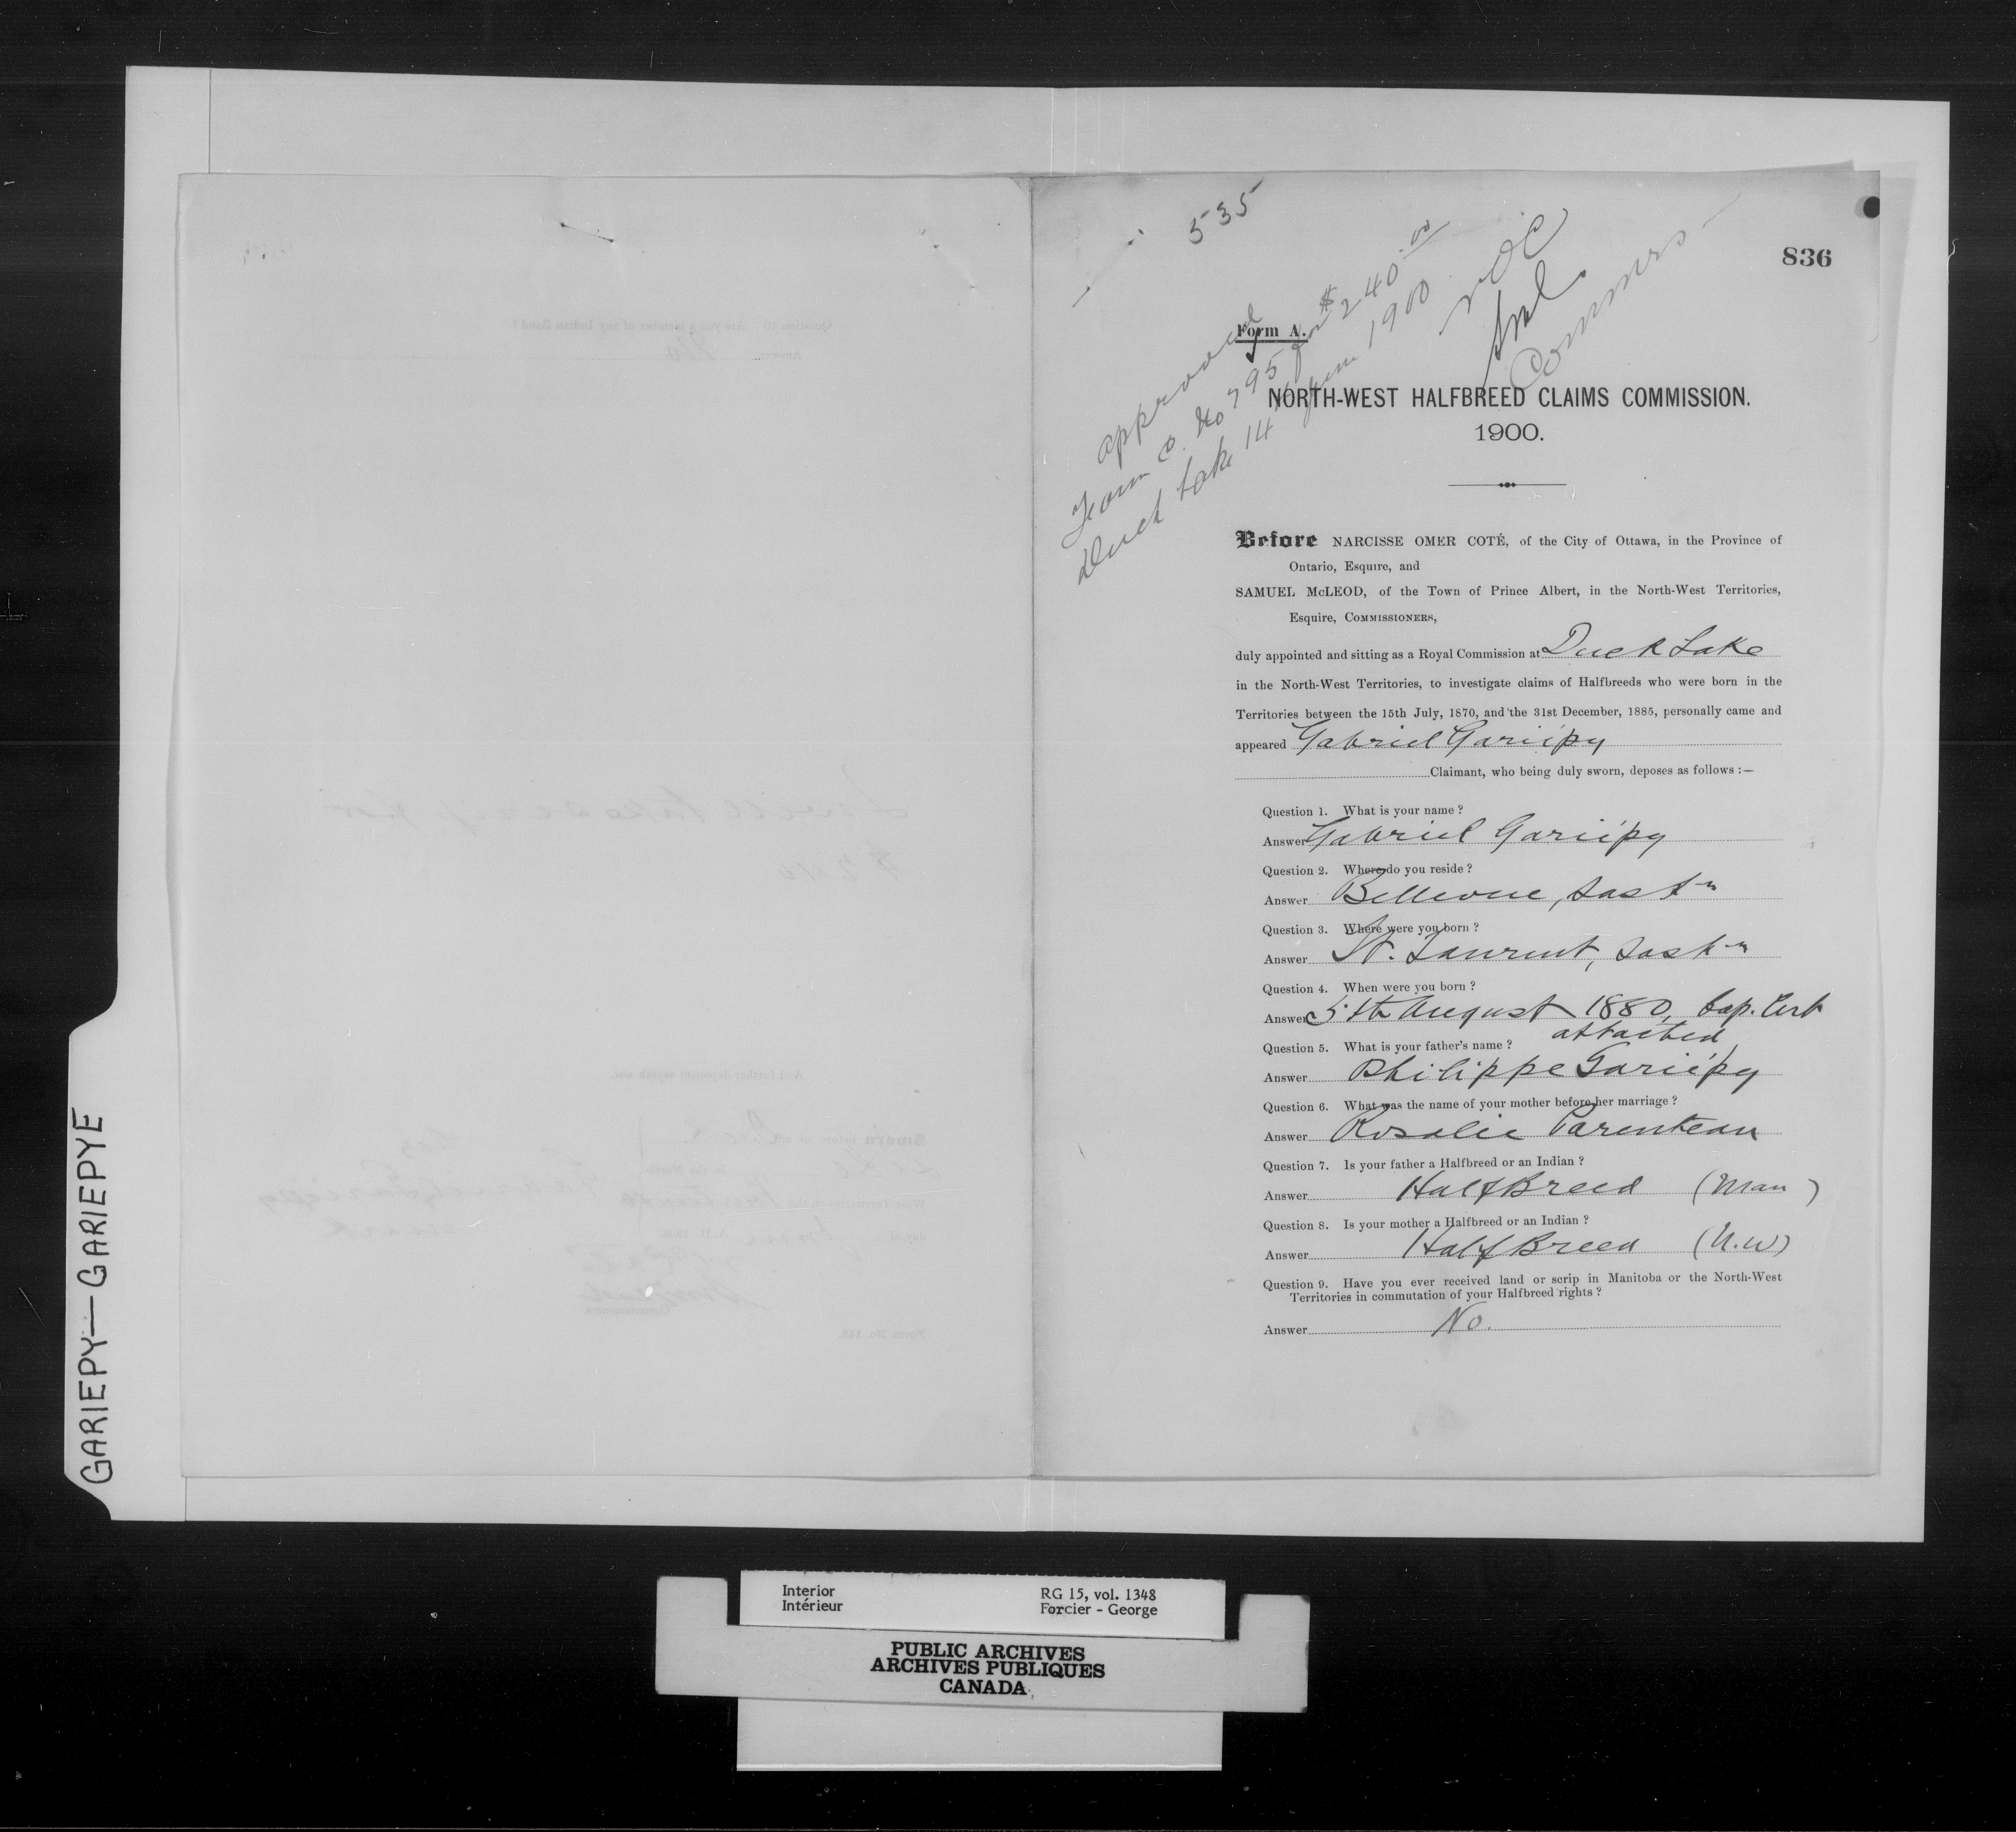 535
836
approved
Form C. No 795 for $240.00
Duck Lake 14 June 1900
NOC
SML
Commrs
Form A.
NORTH-WEST HALFBREED CLAIMS COMMISSION.
1900.
Before NARCISSE OMER COTÉ, of the City of Ottawa, in the Province of
Ontario, Esquire, and
SAMUEL McLEOD, of the Town of Prince Albert, in the North-West Territories,
Esquire, COMMISSIONERS,
duly appointed and sitting as a Royal Commission at Duck Lake
in the North-West Territories, to investigate claims of Halfbreeds who were born in the
Territories between the 15th July, 1870, and the 31st December, 1885, personally came and
appeared Gabriel Gariépy
Claimant, who being duly sworn, deposes as follows :—
Question 1. What is your name ?
Answer Gabriel Gariépy
Question 2. Where do you reside ?
Answer Bellevue, Sask n
Question 3. Where were you born ?
Answer St. Laurent, Sask n
Question 4. When were you born ?
Answer 5th August 1880, bap. Cert
attached
Question 5. What is your father's name ?
Answer Philippe Gariépy
Question 6. What was the name of your mother before her marriage ?
Answer Rosalie Parenteau
Question 7. Is your father a Halfbreed or an Indian ?
Answer HalfBreed (Man)
Question 8. Is your mother a Halfbreed or an Indian ?
Answer HalfBreed (N.W)
Question 9. Have you ever received land or scrip in Manitoba or the North-West
Territories in commutation of your Halfbreed rights ?
Answer No.
GARIEPY—GARIEPYE
Interior RG 15, vol. 1348
Intérieur Forcier - George
PUBLIC ARCHIVES
ARCHIVES PUBLIQUES
CANADA